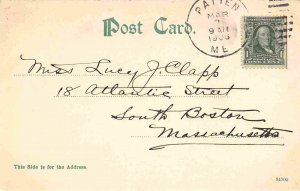 Post Card.
PATTEN
MAR
9 AM
ME.
Miss Lucy J. Clapp
18 Atlantic Street
South Boston
Massachusetts
This Side is for the Address.